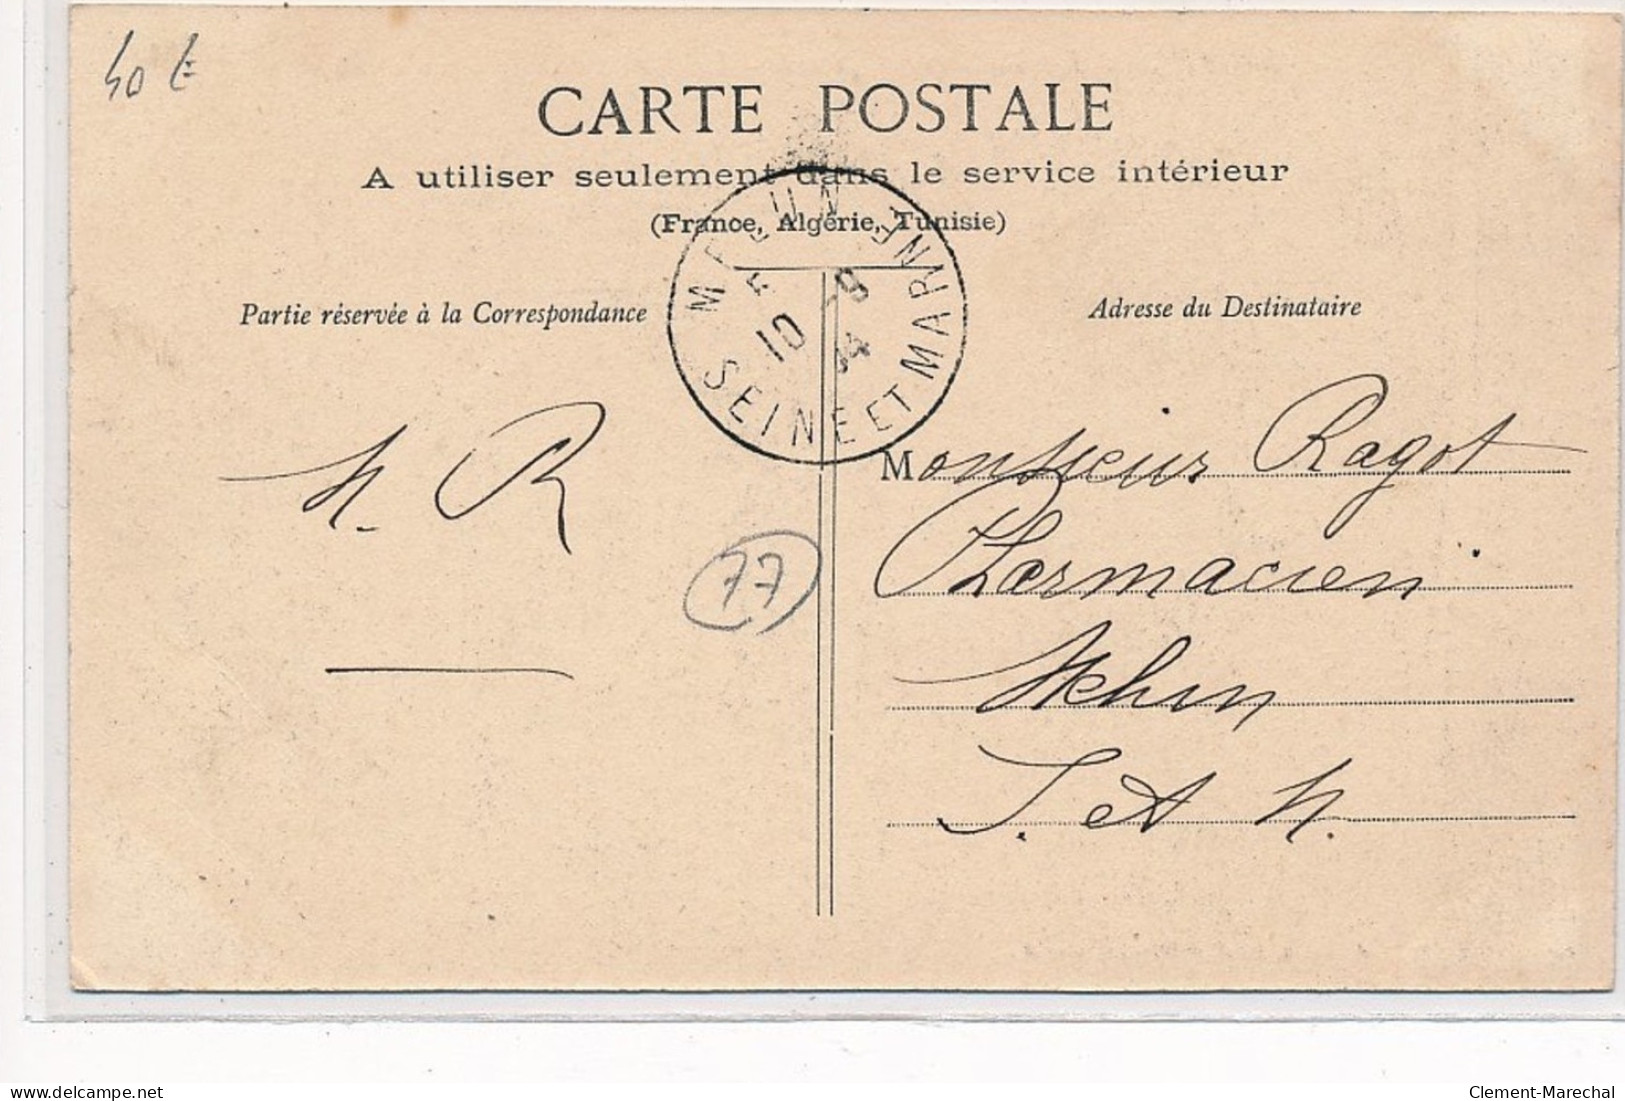 40 €
CARTE POSTALE
A utiliser seulement dans le service intérieur
(France, Algérie, Tunisie)
MELUN
10
SEINE ET MARNE
Partie réservée à la Correspondance
Adresse du Destinataire
R
77
Monsieur Ragot
Pharmacien
delcampe.net
Clement-Marechal